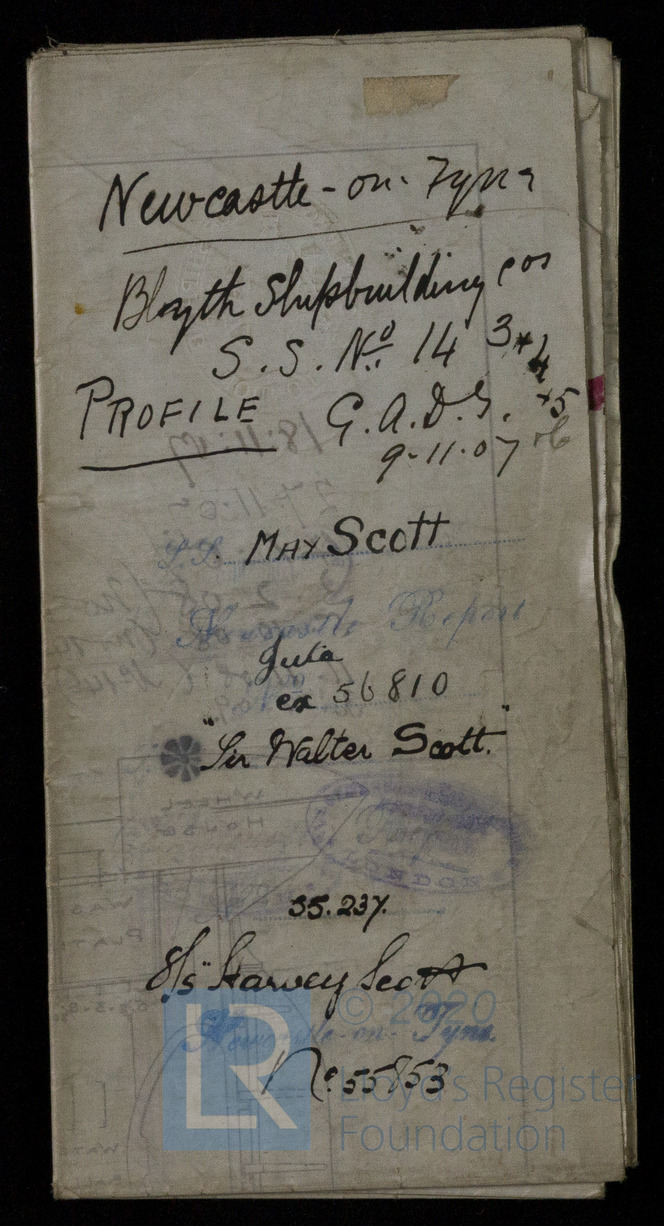 Newcastle-on-Tyne
Blyth Shipbuilding Cos
S.S. No. 14 3+4
+5
+6
PROFILE G.A.D.S.
9-11-07
S.S. MAY Scott
Newcastle Report
56810
"Sir Walter Scott."
55.237.
S/S "Harvey Scott
Newcastle-on-Tyne.
No. 55853
LR
© 2020
Lloyd's Register
Foundation